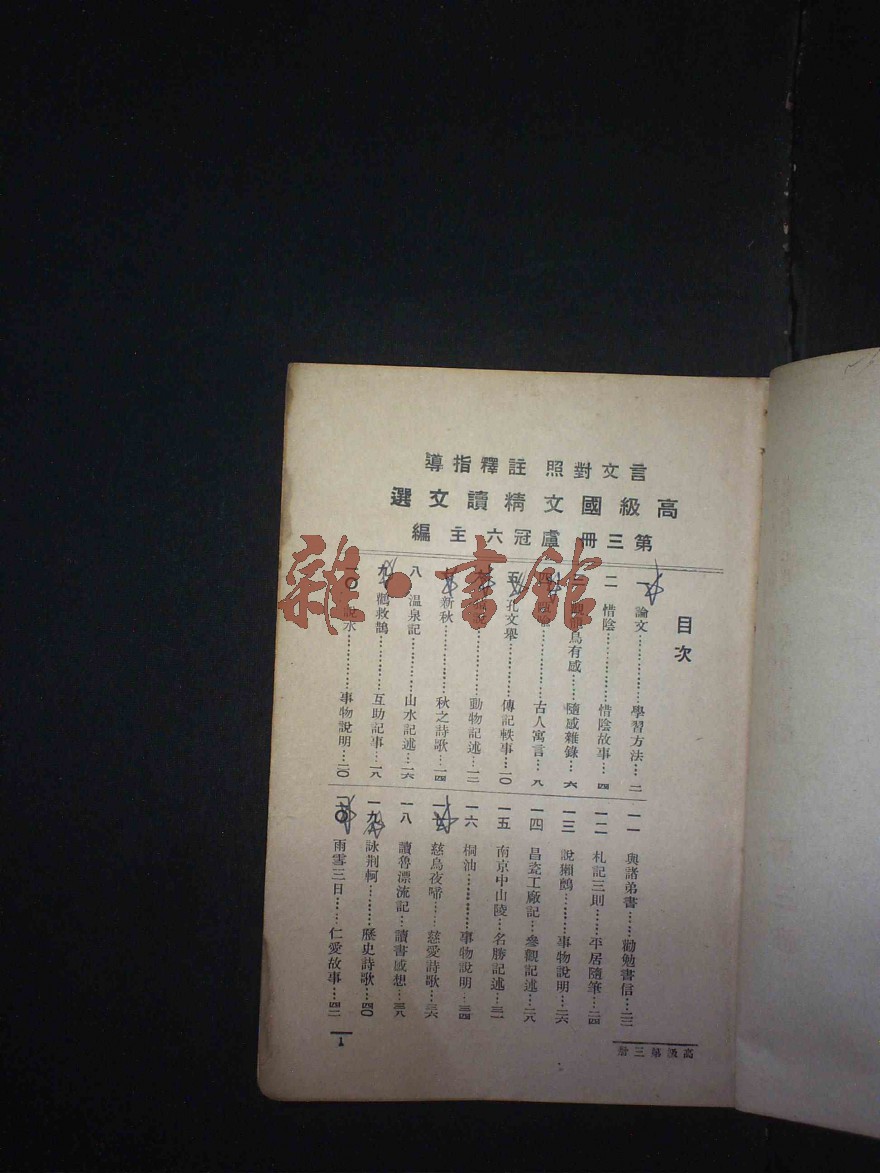 言文對照 註釋指導
高級國文精讀文選
第三冊 盧冠六主編
目次
一 論文……………學習方法…二
二 惜陰……………惜陰故事…四
三 鳥有感……隨感雜錄…六
四 古人寓言…九
五 孔文舉…………傳記軼事…一〇
動物記述…一二
新秋……………秋之詩歌…一四
八 溫泉記…………山水記述…一六
九 鸛救鵲…………互助記事…一八
一〇 說水……………事物說明…二〇
一一 與諸弟書……勸勉書信…二二
一二 札記三則……平居隨筆…二四
一三 說獺鷓………事物說明…二六
一四 昌瓷工廠記…參觀記述…二八
一五 南京中山陵…名勝記述…三一
一六 桐油…………事物說明…三四
慈烏夜啼……慈愛詩歌…三六
一八 讀魯漂流記…讀書感想…三八
一九 詠荊軻………歷史詩歌…四〇
二〇 雨雪三日……仁愛故事…四二
高級第三冊
1
雜·書館